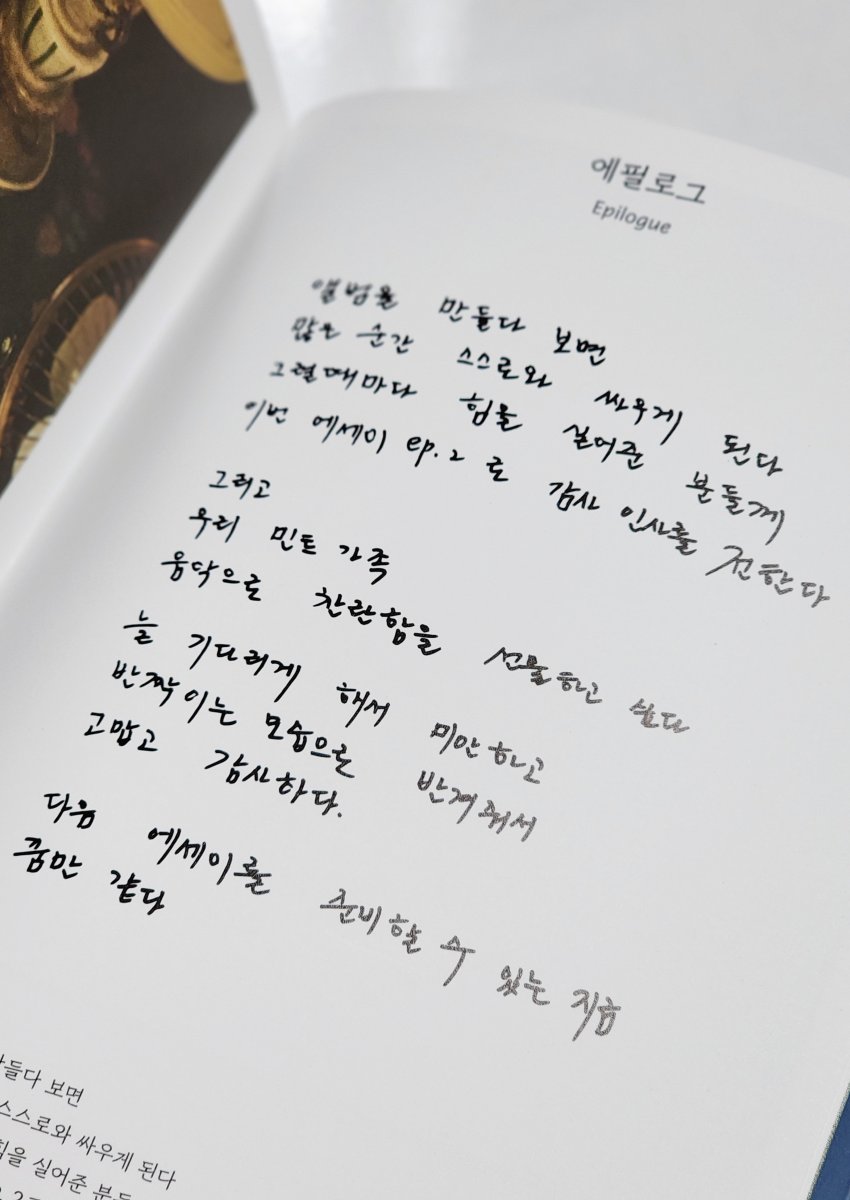 에필로그
Epilogue
앨범을 만들다 보면
많은 순간 스스로와 싸우게 된다
그럴때마다 힘을 실어준 분들께
이번 에세이 ep.2 로 감사 인사를 전한다
그리고
우리 민트 가족
음악으로 찬란함을 선물하고 싶다
늘 기다리게 해서 미안하고
반짝이는 모습으로 반겨줘서
고맙고 감사하다.
다음 에세이를 준비할 수 있는 지금
꿈만 같다
보면
스스로와 싸우게 된다
힘을 실어준